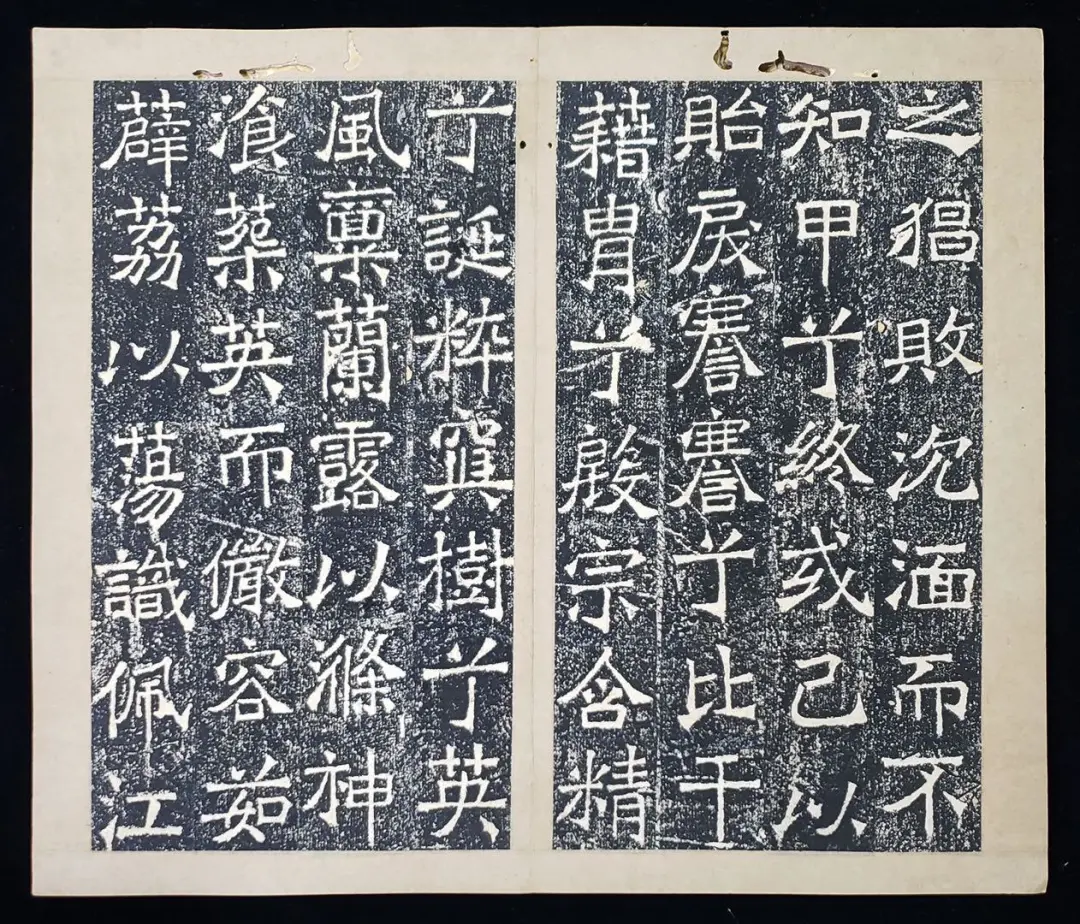 之猖敗沈湎而不
知甲兮終或己以
貽戾謇謇兮比干
藉胄兮殷宗含精
兮誕粹巽樹兮英
風稟蘭露以滌神
湌英而儼容茹
薜荔以蕩識佩江